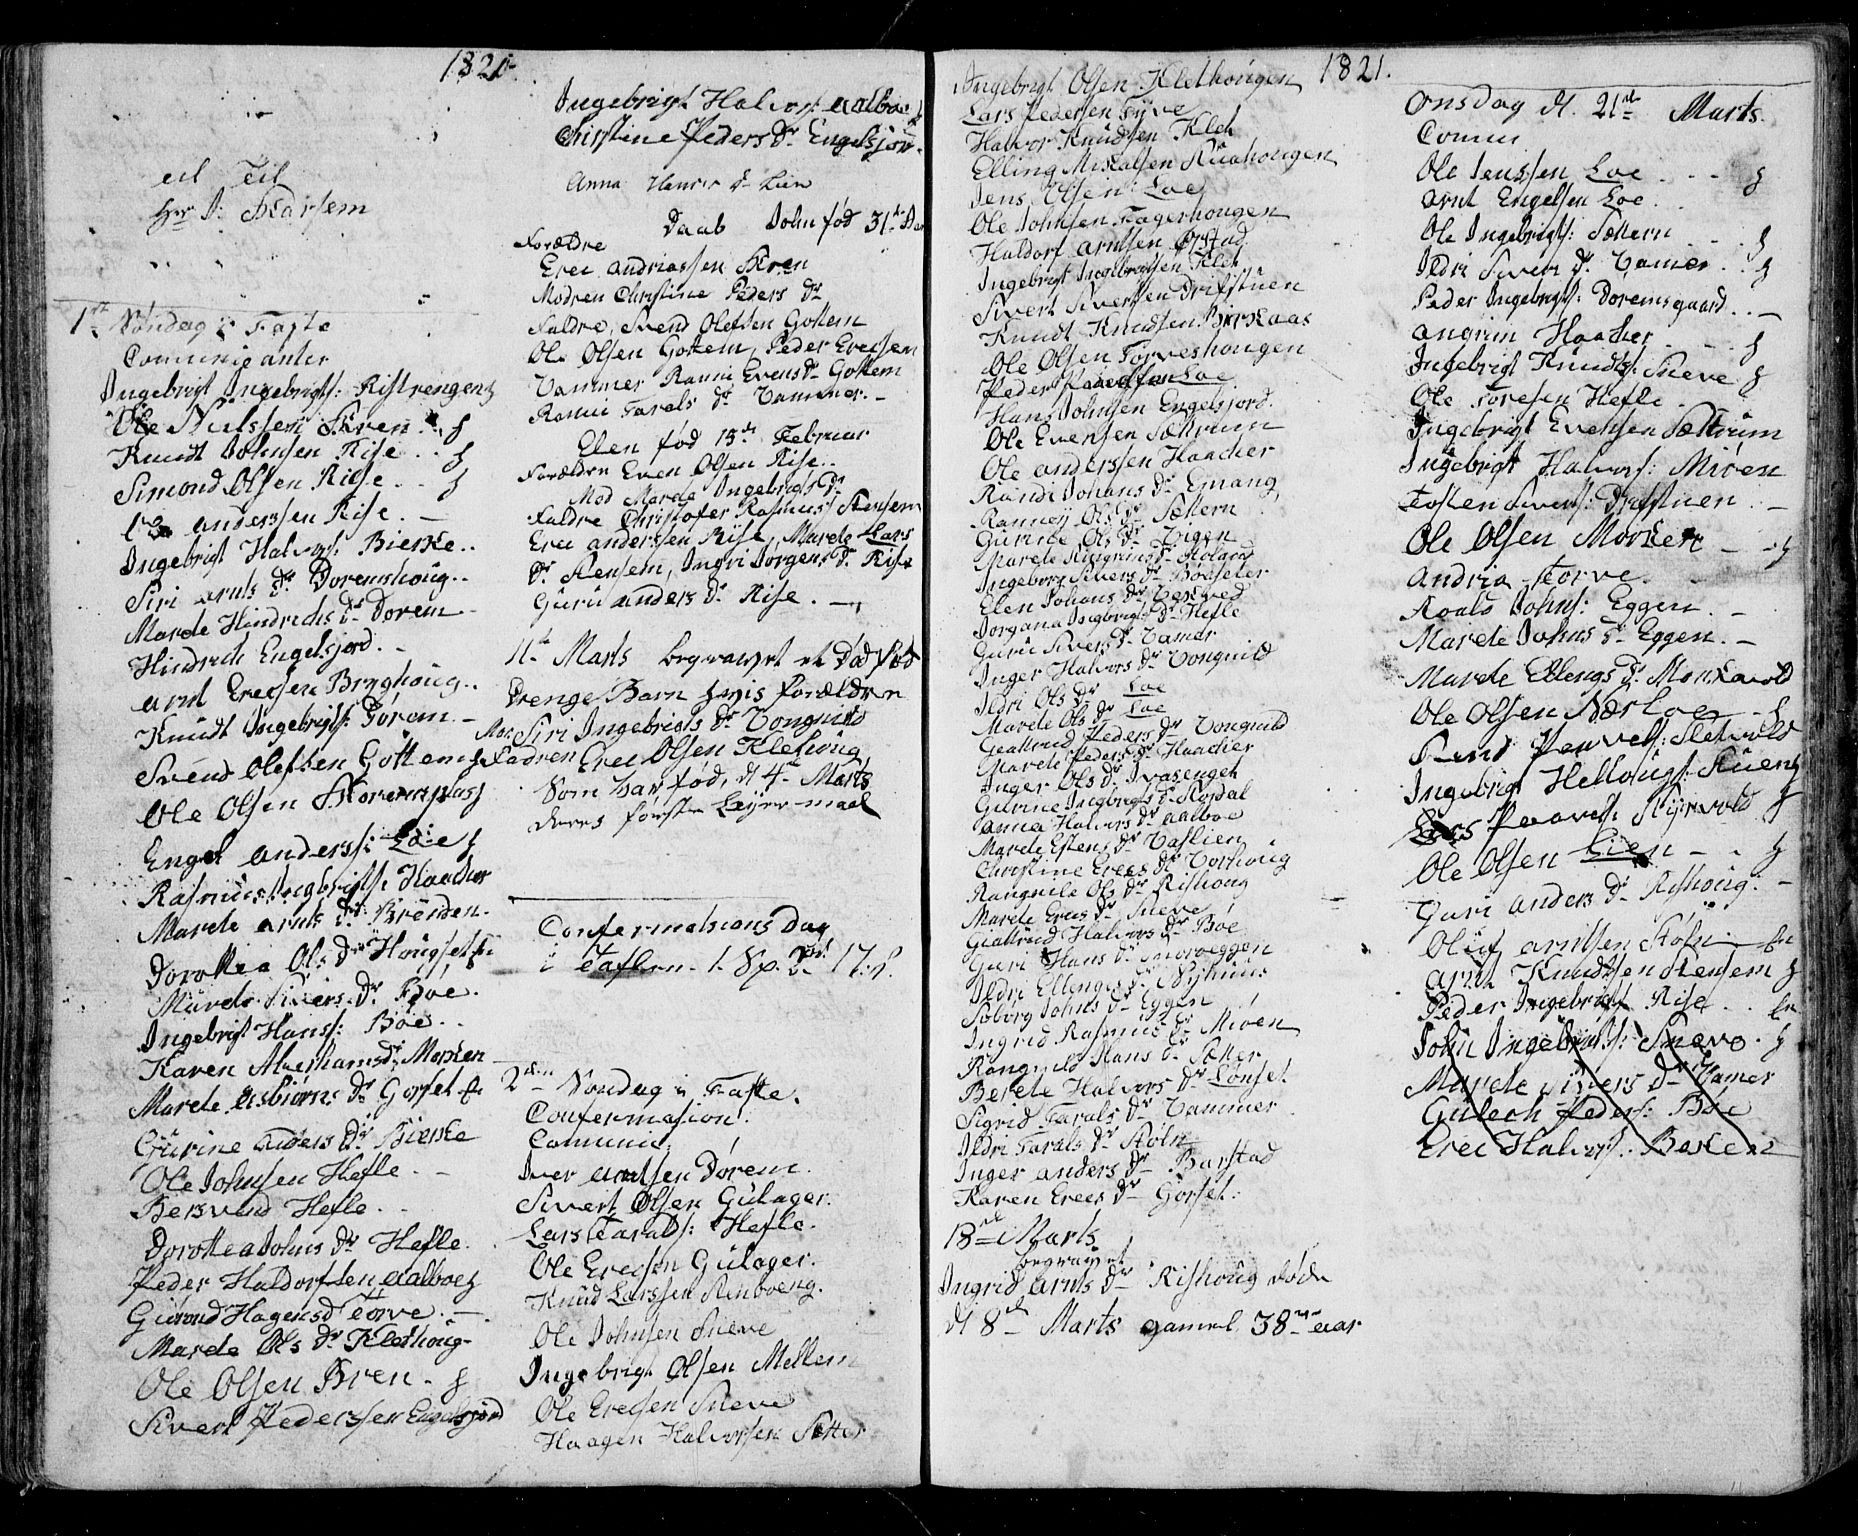 1821.
eil Til
hr S: Skarsem
1ste Søndag i Faste
Comunicanter
Ingebrigt Ingebrigts: Ristrengen
Ole Nielssen Skren
Knudt Johnsen Rise
Simond Olsen Riese
anderssen Rise
Ingebrigt Halvors: Bierke
Siri arnts Dr Doremshoug
Marele Hindrichs Dr Dorem
Hindrich Engelsjord
arnt Erecsen Bryghoug
Knudt Ingebrigts: Gorem
Svend Olefsen Gottem
Ole Olsen Skoremplass
Engel anderss: Loe
Rasmus Ingbrigts: Haacher
Marele arnts Dr Brenden
Dorottea Ols Dr Hougset
Marele Sivers Dr Bøe
Ingebrigt Hanss: Böe
Karen Abrahams Dr Morken
Marele Asbiörns Dr Gorset
Gurine anders Dr Bierke
Ole Johnsen Hefle
Bersvend Hefle
Dorottea Johns Dr Hefle
Peder Haldorfsen aalboe
Gurond Hagens d Torve
Marele Ols Dr Klethoug
Ole Olsen Bren
Sivert Pederssen Engelsjord
Ingebrigt Halvors aalboe
Christine Peders Dr Engelsjor
Anna Hans Dr Lien
Daab John fød 31te
Forældre
Erec andriassen Skren
Modren Christine Peders Dr
Faldre, Svend Olefsen Gottem
Ole Olsen Gottem, Peder Erecsen
Vammer Ranni Evens Dr Gottem
Ranni Tarals Dr Vammer
Elen fød 15de Februar
Forældre Even Olsen Rise
Mod Marele Ingebrigts Dr
Faldre Christofer Rasmus: Stensem
Erec anderssen Rise, Marele Lars
Dr Stensem, Ingri Jorgens Dr Rise
Guru anders Dr Rise
11te Marts begravet et Død fød
Drenge Barn hvis forældre
Mor Siri Ingebrigts Dr Vongnild
Fadren Erec Olsen Klethoug
Som var fød, d 4de Marts
deres første Leyer-maal
Confermatsions Dag
i Taflen. 1. Sp. 3. 17:
2den Søndag i Faste
Confermasion
Comunic:
Iver arntsen Dorem
Sivert Olsen Gulager
Lars Tarals: Hefle
Ole Erecsen Gulager
Knud Larssen Stenboeng
Ole Johnsen Sneve
Ingebrigt Olsen Mellem
Ole Erecsen Sneve
Haagen Halvorsen Sætter
1821.
Ingebrigt Olsen Klethougen
Lars Pedersen Fyve
Halvor Knudsen Klet
Elling Mikalsen Ruahougen
Jens Olsen Loe
Ole Johnsen Fagerhougen
Haldorf arntsen Ørstad
Ingebrigt Ingebrigtsen Klet
Sivert Sivertsen Drifstuen
Knudt Knudsen Birkaas
Ole Olsen Torveshougen
Peder Loe
Hans Johnsen Engelsjord
Ole Evensen Sættrum
Ole anderssen Haacher
Randi Johans Dr Gnang
Ranney Ols Dr Sættern
Gurine Ols Dr Vigen
Marele
Ingeborg Sivers Dr Böeseter
Elen Johans Dr Vekved
Jorgana Ingbrigts Dr Hefle
Guru Sivers Dr Vamer
Inger Halvors Dr Vongnild
Ildri Ols Dr Loe
Marele Ols Dr Loe
Geartrud Peders Dr Vongnild
Marele Peders Dr Haacher
Inger Ols Dr Ivasenget
Gurine Ingbrigts Dr Kosdal
anna Halvors Dr aalboe
Marele Estens Dr Vaslien
Christine Erecs Dr Vorhoug
Rangnile Ols Dr Rishoug
Marele Erecs Dr Sneve
Geartrud Halvors Dr Böe
Guri Hans Dr Snoveggen
Ildri Ellings Dr Nyhuus
Soborg Johns Dr Eggen
Ingrid Rasmus Dr Mioen
Rangnild Hans Dr Sætter
Berete Halvors Dr Lönset
Sigrid Tarals Dr Vammer
Ildri Tarals Dr Stöln
Inger anders Dr Barstad
Karen Erecs Dr Gorset
18de Marts
begravet
Ingrid arnts Dr Rishoug døde
d 8de Marts gamel 38 aar
Onsdag d. 21de Marts.
Comun
Ole Jenssen Loe
arnt Engelsen Loe
Ole Ingebrigts: Sættern
Ildri Sivers Dr Vamer
Peder Ingebrigts: Doremsgaard
angrim Haacher
Ingebrigt Knudts: Sneve
Ole Toresen Hefle
Ingebrigt Evensen Sættrum
Ingebrigt Halvors: Mioen
Tosten Siverts: Drifstuen
Ole Olsen Morken
andria Torve
Roals Johns: Eggen
Marele Johns Dr Eggen
Marele Ellings Dr Morkavold
Ole Olsen Nærloe
Svend Povels: Sletvold
Ingebrigt Hellougs: Stuen
Lars Povels: Skyrvold
Ole Olsen Lien
Guri anders Dr Rishoug
Oluf arntsen Stöln
arnt Knudtsen Stensem
Peder Ingebrigts Rise
John Ingebrigts: Snevo
Marele Sivers Dr Vamer
Gulech Peders: Böe
Erec Halvors: Beken